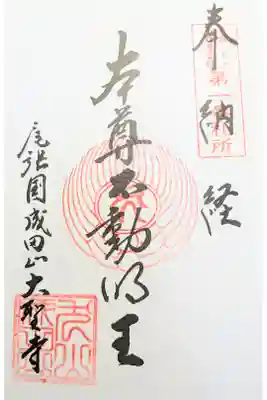 奉納経
本尊不動明王
尾張国成田山大聖寺